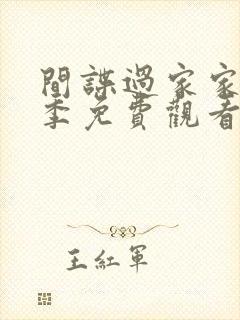 間諜過家家
季免費觀看
王紅軍